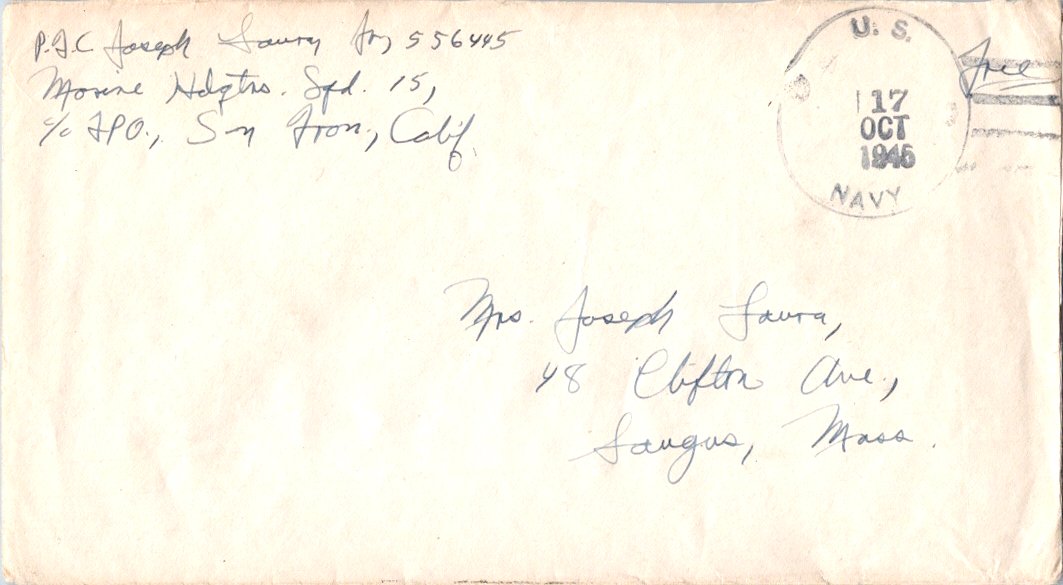 P.F.C. Joseph Laura Jr, 556445
Marine Hdqtrs. Spd. 15,
c/o FPO., San Fran., Calif.
U. S.
17
OCT
1945
NAVY
Free
Mrs. Joseph Laura,
48 Clifton Ave.,
Saugus, Mass.